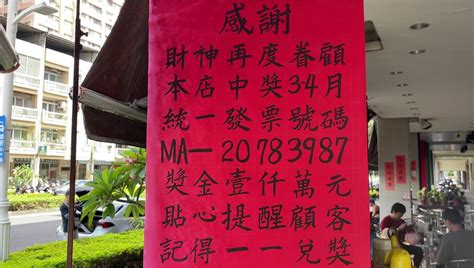 感謝
財神再度眷顧
本店中獎3-4月
統一發票號碼
MA－20783987
獎金壹仟萬元
貼心提醒顧客
記得一一兌獎